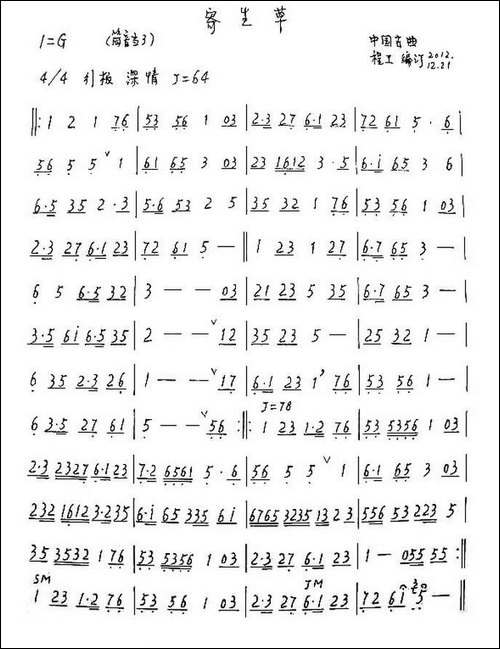 寄生草
1=G （筒音当3） 中国古曲
4/4 引板 深情 J=64 程工 编订 2012.12.21
‖: 1 2 1 76 | 53 56 1 03 | 2·3 27 6·1 23 | 72 61 5 · 6 |
56 5 5 ˅ 1 | 61 65 3 03 | 23 1612 3 · 5 | 6·i 65 3 6 |
6·5 35 2 · 3 | 5·6 53 2 5 | 35 32 1 76 | 53 56 1 03 |
2·3 27 6·1 23 | 72 61 5 — ‖ 1 23 1 27 | 6·7 65 3 — |
6 5 6·5 32 | 3 — — 03 | 21 23 5 35 | 6·7 65 3 — |
3·5 6i 6·5 35 | 2 — — ˅ 12 | 35 23 5 — | 25 32 1 — |
6 35 2·3 26 | 1 — — ˅ 17 | 6·1 23 1 ’ 76 | 53 56 1 — |
J=78
6 3·5 27 61 | 5 — — ˅ 56 :‖: 1 23 1·2 76 | 53 5356 1 03 |
2·3 2327 6·1 23 | 7·2 6561 5 · 6 | 56 5 5 ˅ 1 | 6·1 65 3 03 |
232 1612 3·235 | 6·i 65 335 6i | 6765 3235 13 2 3 | 556 53 223 5 |
35 3532 1 76 | 53 5356 1 03 | 2·3 27 6·1 23 | 1 — 055 55 :‖
SM JM
1 23 1·2 76 | 53 56 1 03 | 2·3 27 6·1 23 | 72 61 5 — ‖